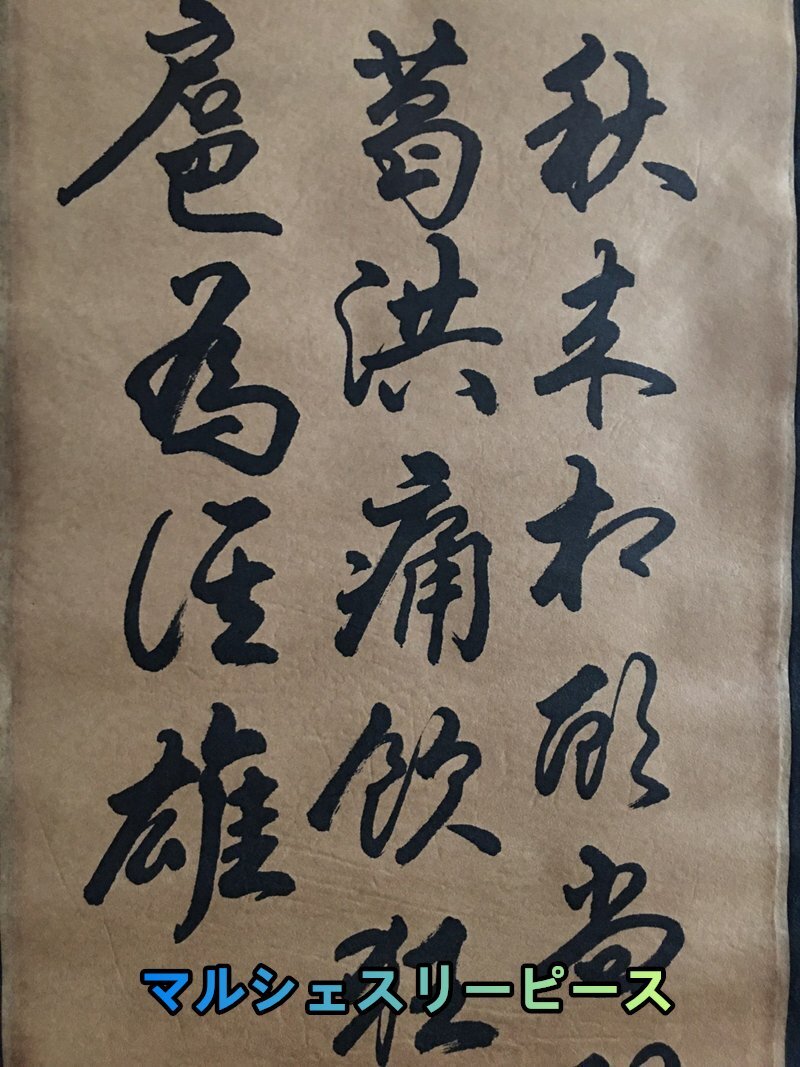 秋来相顧尚
葛洪痛飲狂
扈為誰雄
マルシェスリーピース